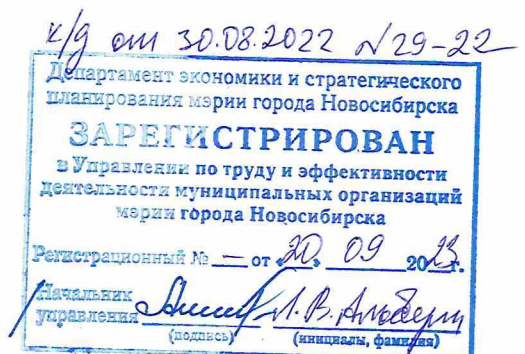 к/д от 30.08.2022 №29-22
Департамент экономики и стратегического
планирования мэрии города Новосибирска
ЗАРЕГИСТРИРОВАН
в Управлении по труду и эффективности
деятельности муниципальных организаций
мэрии города Новосибирска
Регистрационный № — от «20» 09 2023г.
Начальник
управления Л.В.
(подпись) (инициалы, фамилия)